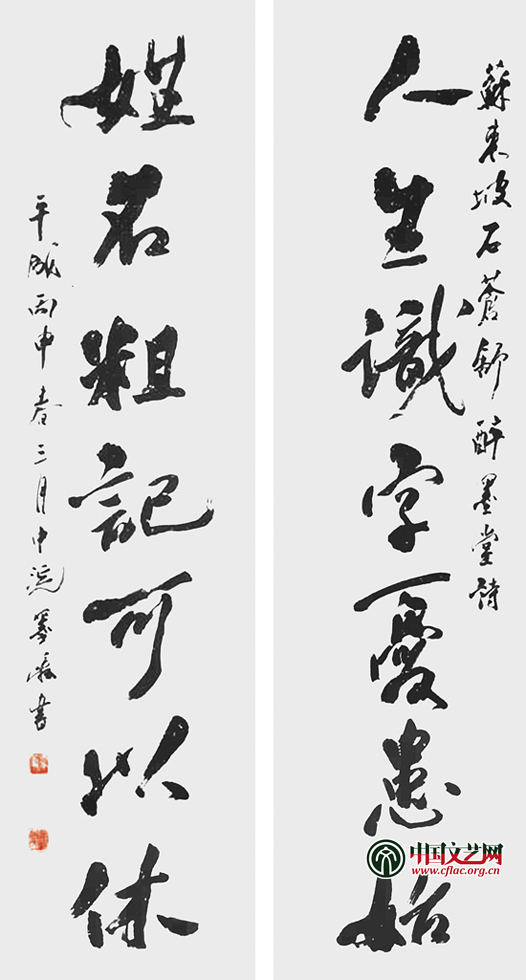 蘇東坡石蒼舒醉墨堂詩
人生識字憂患始
姓名粗記可以休
平成丙申春三月中浣書
中国文艺网
www.cflac.org.cn